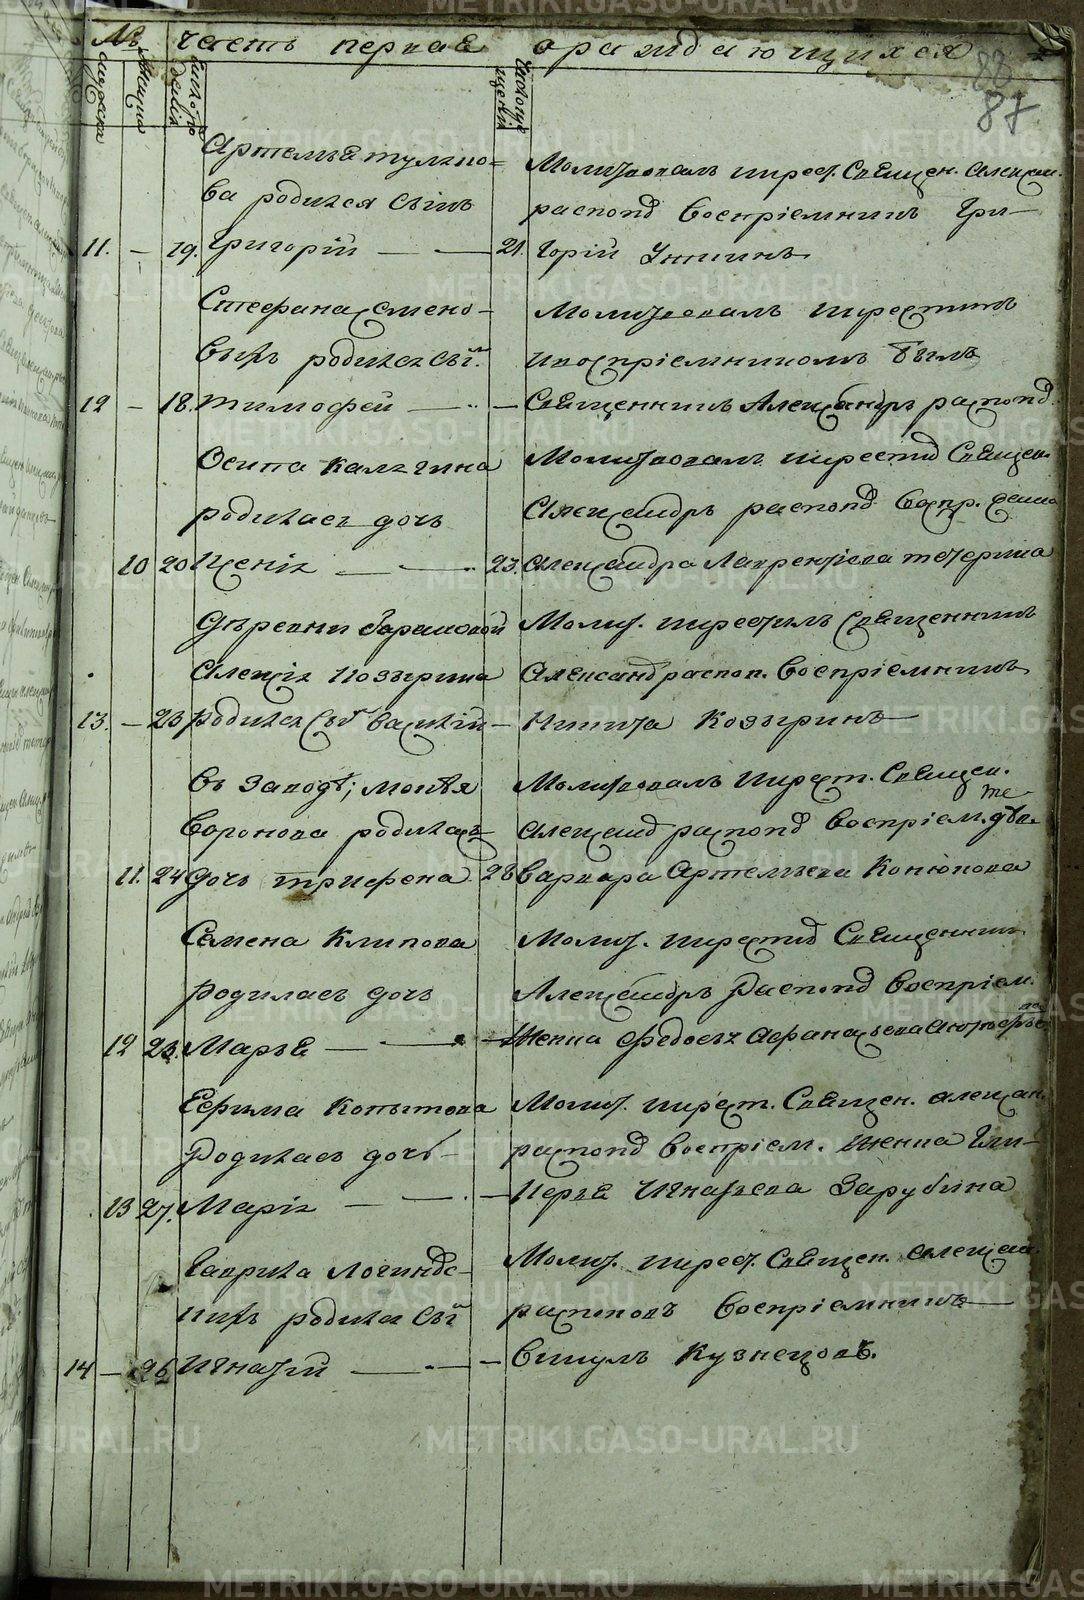 METRIKI.GASO-URAL.RU
№ часть первая орождающихся
83
87
мужска
женска
число рождения
число крещения
Артемья тулно=
ва родился сынъ
11. — 19. Григорій — — 21.
Молитвовалъ икрест. Священ. Алексан.
распопд воспріемникъ Гри-
горій
Стефана Семено-
выхъ родился сы.
12 — 18. тимофей — —
Молитвовалъ икрестилъ
ивоспріемникомъ былъ
Священникъ Александръ распопд.
Осипа Калугина
родилась дочь
10 20 Ксенія — — 23.
Молитвовалъ икрестилъ Священ.
Александръ распопд воспр.
Александра Лаврентіева
деревни
Алексія Козырина
13. — 23 родился сы Василій —
Молит. икрестилъ Священникъ
Александ распоп. воспріемникъ
Никита Козыринъ
въ заводѣ; мокѣя
Воронова родилась
11. 24 дочь трифена 28
Молитвовалъ икрест. Священ.
Александ распопд воспріем. дѣв.
Варвара Артемьева Конюхова
Семена Климова
родилась дочь
12 23. Марья — —
Молит. икрестилъ Священникъ
Александръ Распопд воспріем.
Женка Федосья Афанасьева
Ефима Копытова
Родилась дочь —
13 27. Марія — —
Молит. икрест. Священ. Алексан.
распопд воспріем. Женка Гли-
керья Игнатьева Зарубина
Гаврила Логинов-
ихъ родился сы
14 — 26 Игнатій — —
Молит. икрест. Священ. Алексан.
распоповъ воспріемникъ —
викулъ Кузнецовъ.